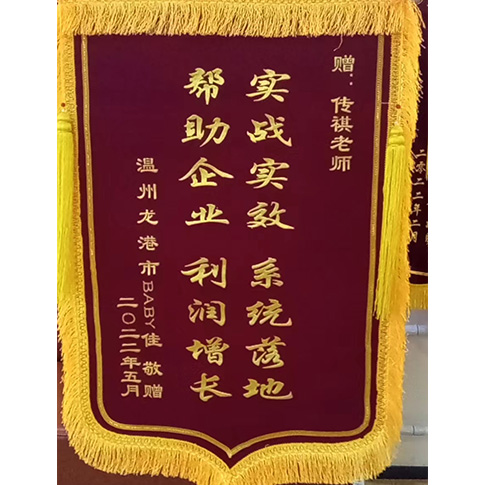 赠：传祺老师
实战实效 系统落地
帮助企业 利润增长
温州龙港市BABY佳 敬赠
二〇二二年五月
二零二二年二月